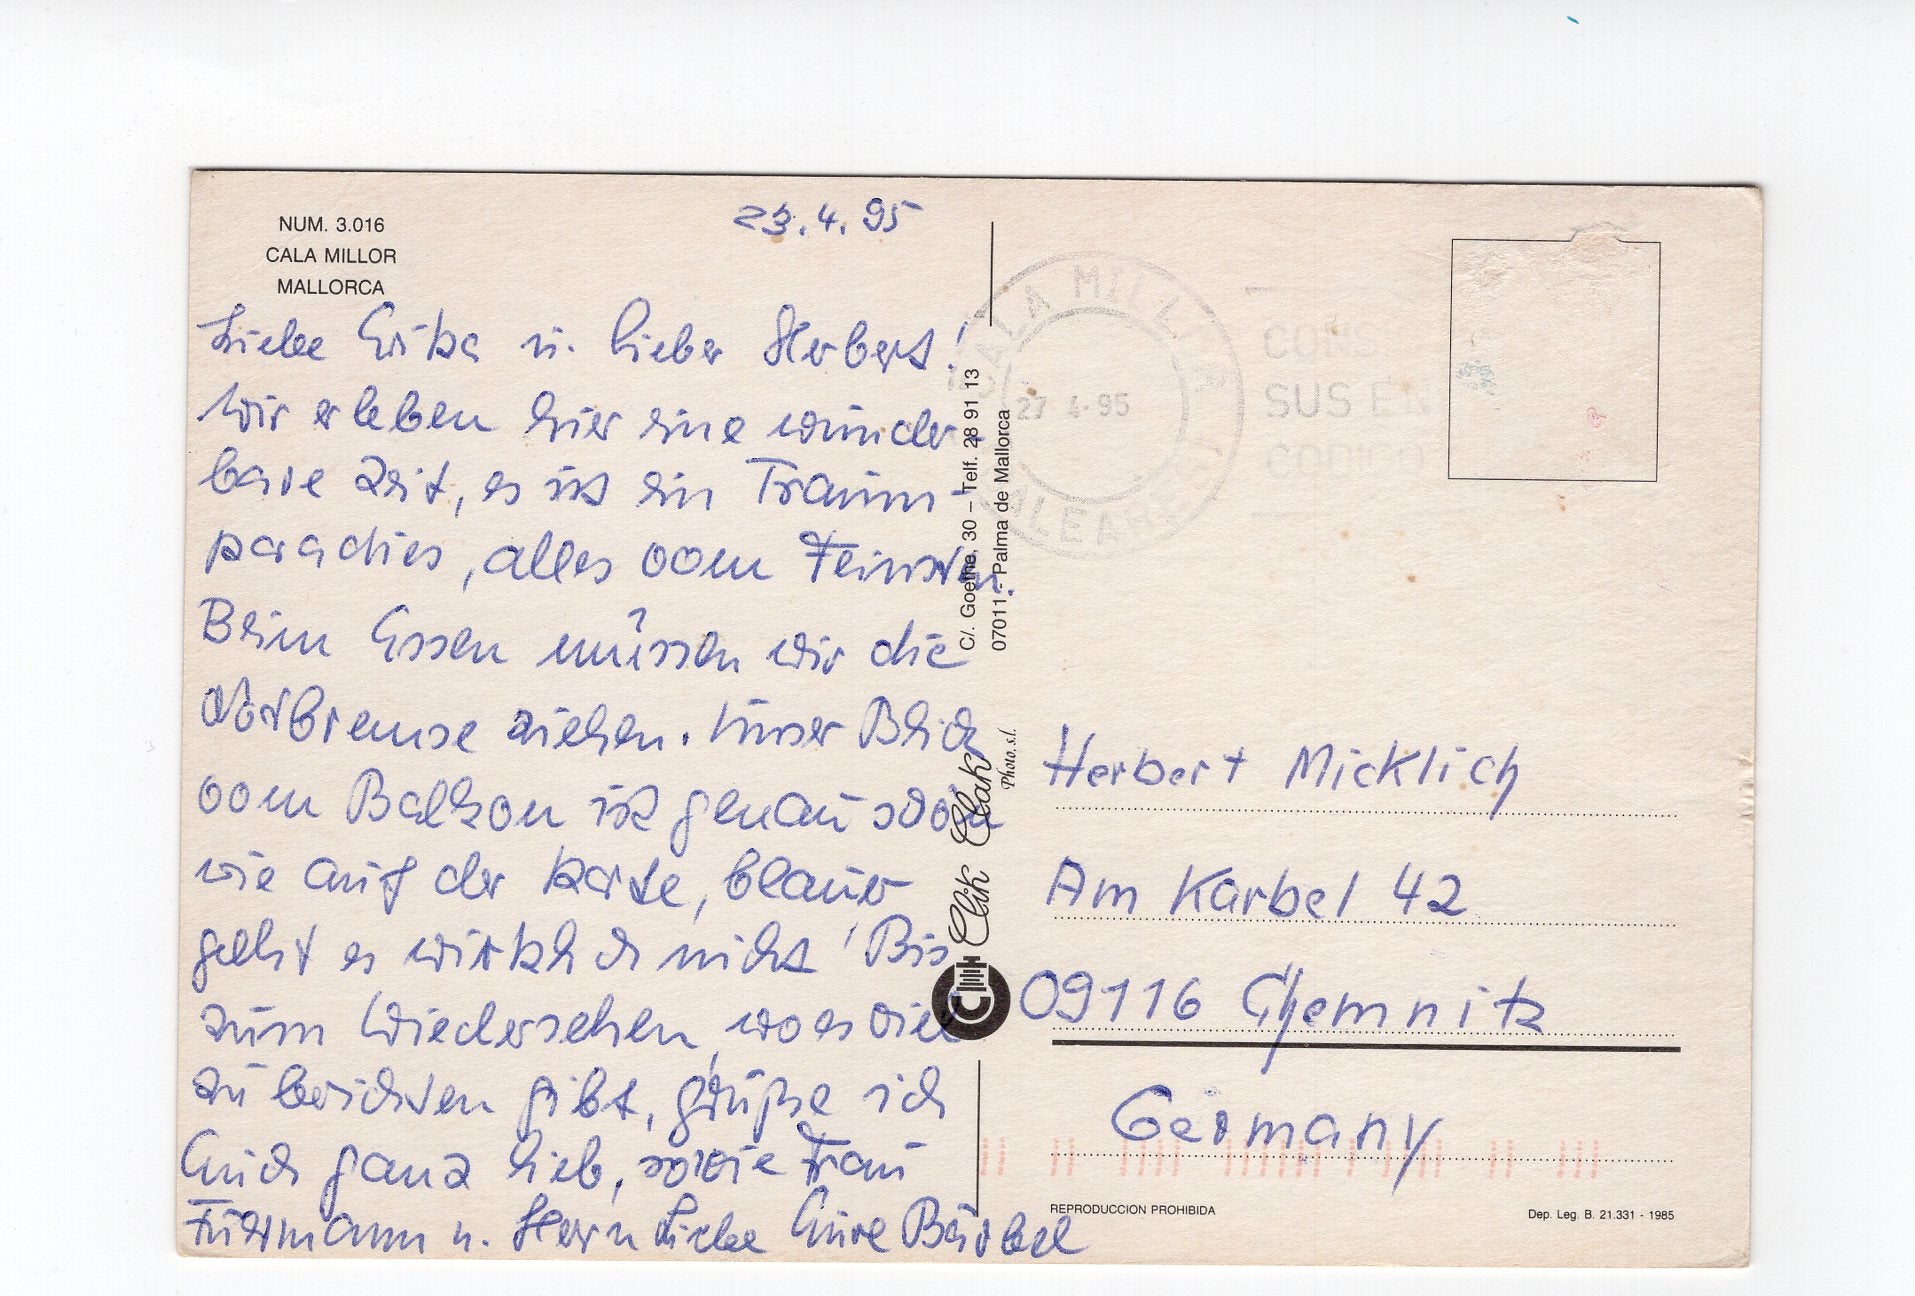 NUM. 3.016
CALA MILLOR
MALLORCA
23.4.95
Liebe Erika u. lieber Herbert!
Wir erleben hier eine wunder-
bare Zeit, es ist ein Traum-
paradies, alles vom Feinsten.
Beim Essen müssen wir die
Notbremse ziehen. Unser Blick
vom Balkon ist genau so
wie auf der Karte, blauer
geht es wirklich nicht! Bis
zum Wiedersehen, wo es viel
zu berichten gibt, grüße ich
Euch ganz lieb, sowie Frau
Fuhrmann u. Herrn Liebe Eure Bärbel
C/. Goethe, 30 – Telf. 28 91 13
07011 - Palma de Mallorca
Clik Clak
Photo, s.l.
CALA MILLOR
27 4 95
BALEARES
SUS EN
CODIGO
Herbert Micklich
Am Karbel 42
09116 Chemnitz
Germany
REPRODUCCION PROHIBIDA
Dep. Leg. B. 21.331 - 1985